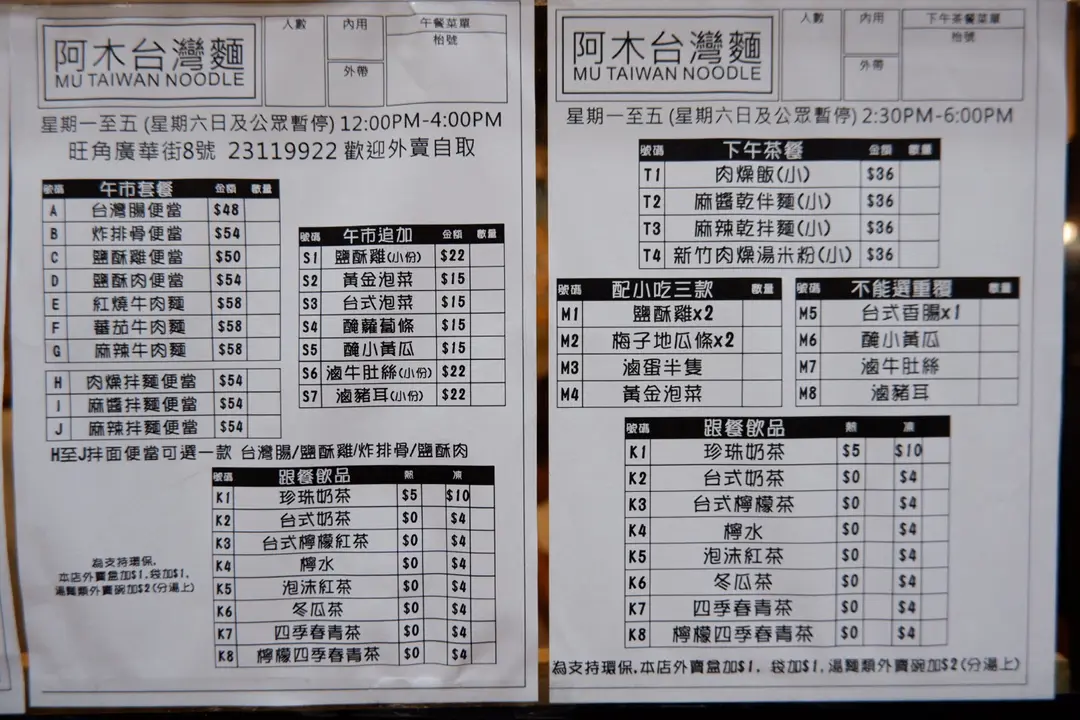 阿木台灣麵
MU TAIWAN NOODLE
人數
內用
外帶
午餐菜單
枱號
星期一至五 (星期六日及公眾暫停) 12:00PM-4:00PM
旺角廣華街8號 23119922 歡迎外賣自取
號碼 午市套餐 金額 數量
A 台灣腸便當 $48
B 炸排骨便當 $54
C 鹽酥雞便當 $50
D 鹽酥肉便當 $54
E 紅燒牛肉麵 $58
F 蕃茄牛肉麵 $58
G 麻辣牛肉麵 $58
H 肉燥拌麵便當 $54
I 麻醬拌麵便當 $54
J 麻辣拌麵便當 $54
號碼 午市追加 金額 數量
S1 鹽酥雞(小份) $22
S2 黃金泡菜 $15
S3 台式泡菜 $15
S4 醃蘿蔔條 $15
S5 醃小黃瓜 $15
S6 滷牛肚絲(小份) $22
S7 滷豬耳(小份) $22
H至J拌面便當可選一款 台灣腸/鹽酥雞/炸排骨/鹽酥肉
號碼 跟餐飲品 熱 凍
K1 珍珠奶茶 $5 $10
K2 台式奶茶 $0 $4
K3 台式檸檬紅茶 $0 $4
K4 檸水 $0 $4
K5 泡沫紅茶 $0 $4
K6 冬瓜茶 $0 $4
K7 四季春青茶 $0 $4
K8 檸檬四季春青茶 $0 $4
為支持環保,
本店外賣盒加$1,袋加$1,
湯麵類外賣碗加$2(分湯上)
阿木台灣麵
MU TAIWAN NOODLE
人數
內用
外帶
下午茶餐菜單
枱號
星期一至五 (星期六日及公眾暫停) 2:30PM-6:00PM
號碼 下午茶餐 金額 數量
T1 肉燥飯(小) $36
T2 麻醬乾伴麵(小) $36
T3 麻辣乾拌麵(小) $36
T4 新竹肉燥湯米粉(小) $36
號碼 配小吃三款 數量
M1 鹽酥雞x2
M2 梅子地瓜條x2
M3 滷蛋半隻
M4 黃金泡菜
號碼 不能選重覆 數量
M5 台式香腸x1
M6 醃小黃瓜
M7 滷牛肚絲
M8 滷豬耳
號碼 跟餐飲品 熱 凍
K1 珍珠奶茶 $5 $10
K2 台式奶茶 $0 $4
K3 台式檸檬茶 $0 $4
K4 檸水 $0 $4
K5 泡沫紅茶 $0 $4
K6 冬瓜茶 $0 $4
K7 四季春青茶 $0 $4
K8 檸檬四季春青茶 $0 $4
為支持環保,本店外賣盒加$1, 袋加$1,湯麵類外賣碗加$2(分湯上)